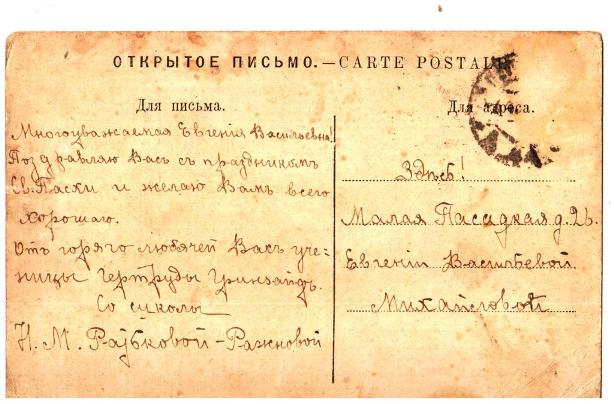 ОТКРЫТОЕ ПИСЬМО.—CARTE POSTALE
Для письма.
Многоуважаемая Евгенія Васильевна!
Поздравляю Васъ съ праздникомъ
Св. Пасхи и желаю Вамъ всего
хорошаго.
Отъ горяго любячей Васъ уче-
ницы Гертруды Гринзайдъ.
Со школы
Н. М. Раӱбковой-Ражновой
Для адреса.
Здѣсь!
Малая Посадкая д. 26.
Евгеніи Васильевой
Михайловой